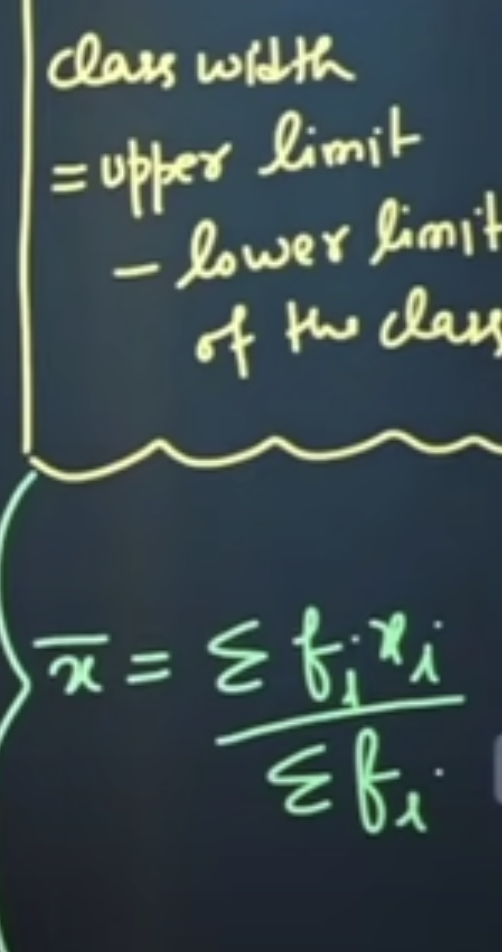 class width
= upper limit
- lower limit
of the class
x̄ = Σ fᵢxᵢ
Σ fᵢ